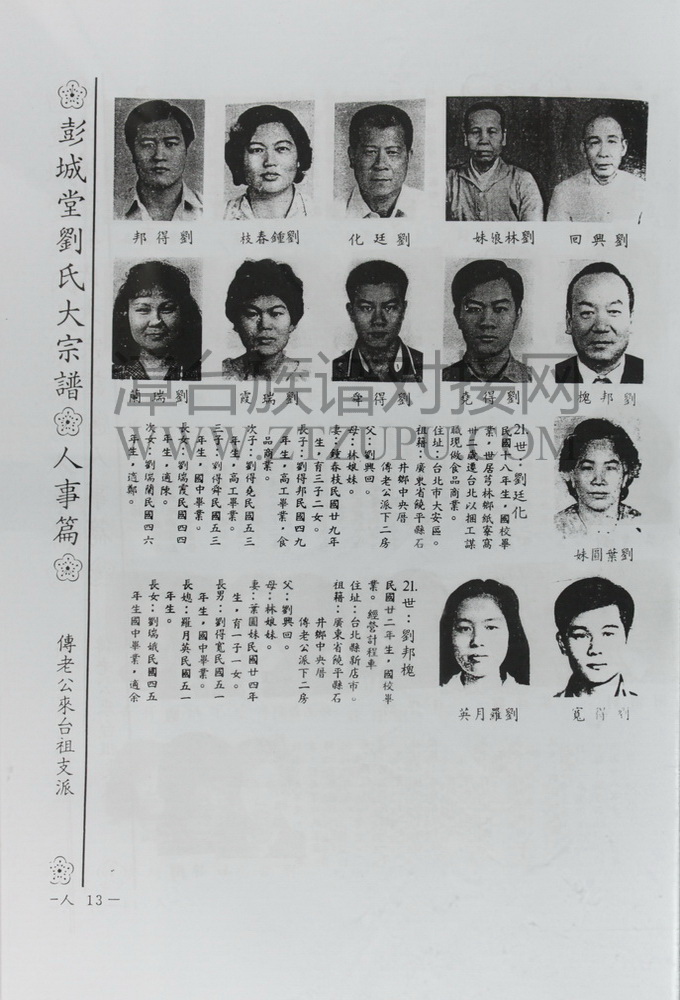 彭城堂劉氏大宗譜 人事篇
傳老公來台祖支派
劉興回
劉林浪妹
劉廷化
劉鍾春枝
劉得邦
劉邦槐
劉得堯
劉得
劉瑞霞
劉瑞蘭
劉葉圓妹
得寬
劉羅月英
21.世：劉廷化
民國十八年生，國校畢
業，世居芎林鄉紙寮窩
廿二歲遷台北以捆工謀
職現做食品商業。
住址：台北市大安區。
祖籍：廣東省饒平縣石
井鄉中央厝
傳老公派下二房
父：劉興回。
母：林娘妹。
妻：鍾春枝民國廿九年
生，育三子二女。
長子：劉得邦民國四九
年生，高工畢業，食
品商業。
次子：劉得堯民國五三
年生，高工畢業。
三子：劉得舜民國五三
年生，國中畢業。
長女：劉瑞霞民國四四
年生，適陳。
次女：劉瑞蘭民國四六
年生，適鄭。
21.世：劉邦槐
民國廿二年生，國校畢
業。經營計程車
住址：台北縣新店市。
祖籍：廣東省饒平縣石
井鄉中央厝
傳老公派下二房
父：劉興回。
母：林娘妹。
妻：葉圓妹民國廿四年
生，育一子一女。
長男：劉得寬民國五一
年生，國中畢業。
長媳：羅月英民國五一
年生。
長女：劉瑞娥民國四五
年生國中畢業，適余
漳台族谱对接网
WWW.ZTZUPU.COM
一人 13一